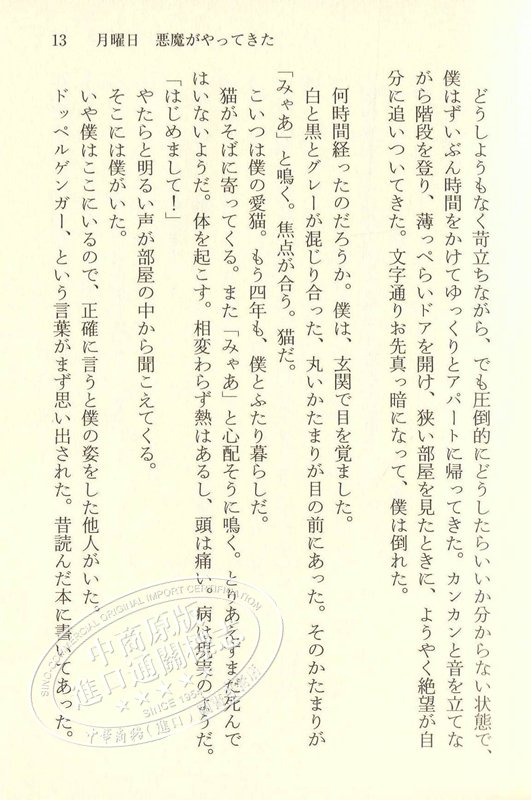 13　月曜日　悪魔がやってきた
どうしようもなく苛立ちながら、でも圧倒的にどうしたらいいか分からない状態で、
僕はずいぶん時間をかけてゆっくりとアパートに帰ってきた。カンカンと音を立てな
がら階段を登り、薄っぺらいドアを開け、狭い部屋を見たときに、ようやく絶望が自
分に追いついてきた。文字通りお先真っ暗になって、僕は倒れた。
何時間経ったのだろうか。僕は、玄関で目を覚ました。
白と黒とグレーが混じり合った、丸いかたまりが目の前にあった。そのかたまりが
「みゃあ」と鳴く。焦点が合う。猫だ。
こいつは僕の愛猫。もう四年も、僕とふたり暮らしだ。
猫がそばに寄ってくる。また「みゃあ」と心配そうに鳴く。とりあえずまだ死んで
はいないようだ。体を起こす。相変わらず熱はあるし、頭は痛い。病は現実のようだ。
「はじめまして！」
やたらと明るい声が部屋の中から聞こえてくる。
そこには僕がいた。
いや僕はここにいるので、正確に言うと僕の姿をした他人がいた。
ドッペルゲンガー、という言葉がまず思い出された。昔読んだ本に書いてあった。
SINO-COMMERCIAL ORIGINAL IMPORT CERTIFICATION
中商原版
進口通關